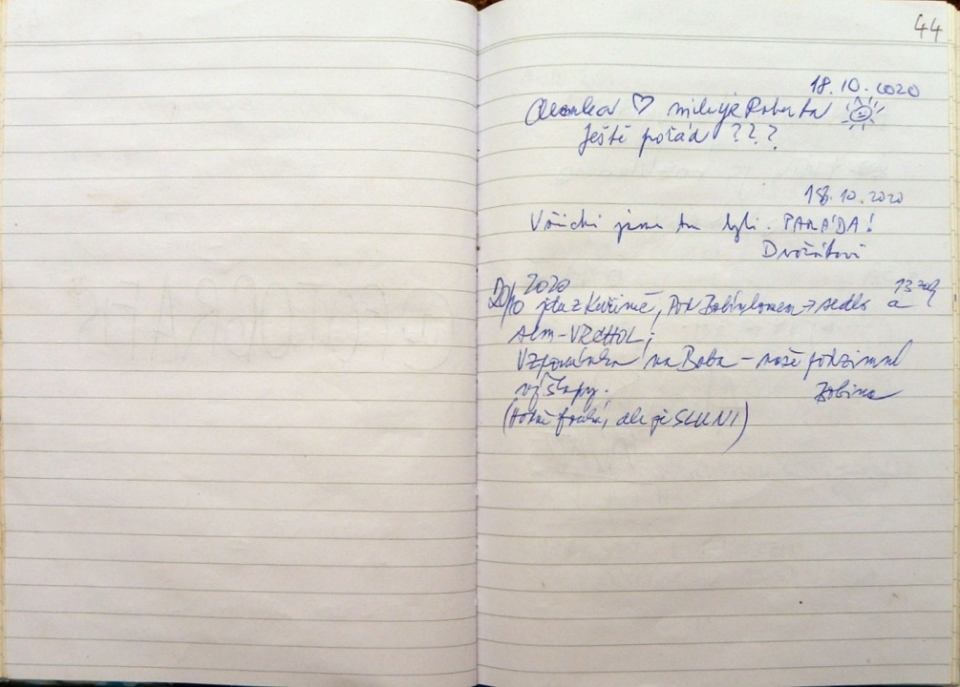 44
18.10.2020
♡ miluje Roberta
Ještě pořád ???
18.10.2020
Všichni jsme tu byli. PARÁDA!
Dvořákovi
2020
20/10 jdu z Kuřimě, Pod → sedlo a
sem - VRCHOL;
Vzpomínka na Boba - naše podzimní
výšlapy.
(hodně fouká, ale je SLUNÍ)